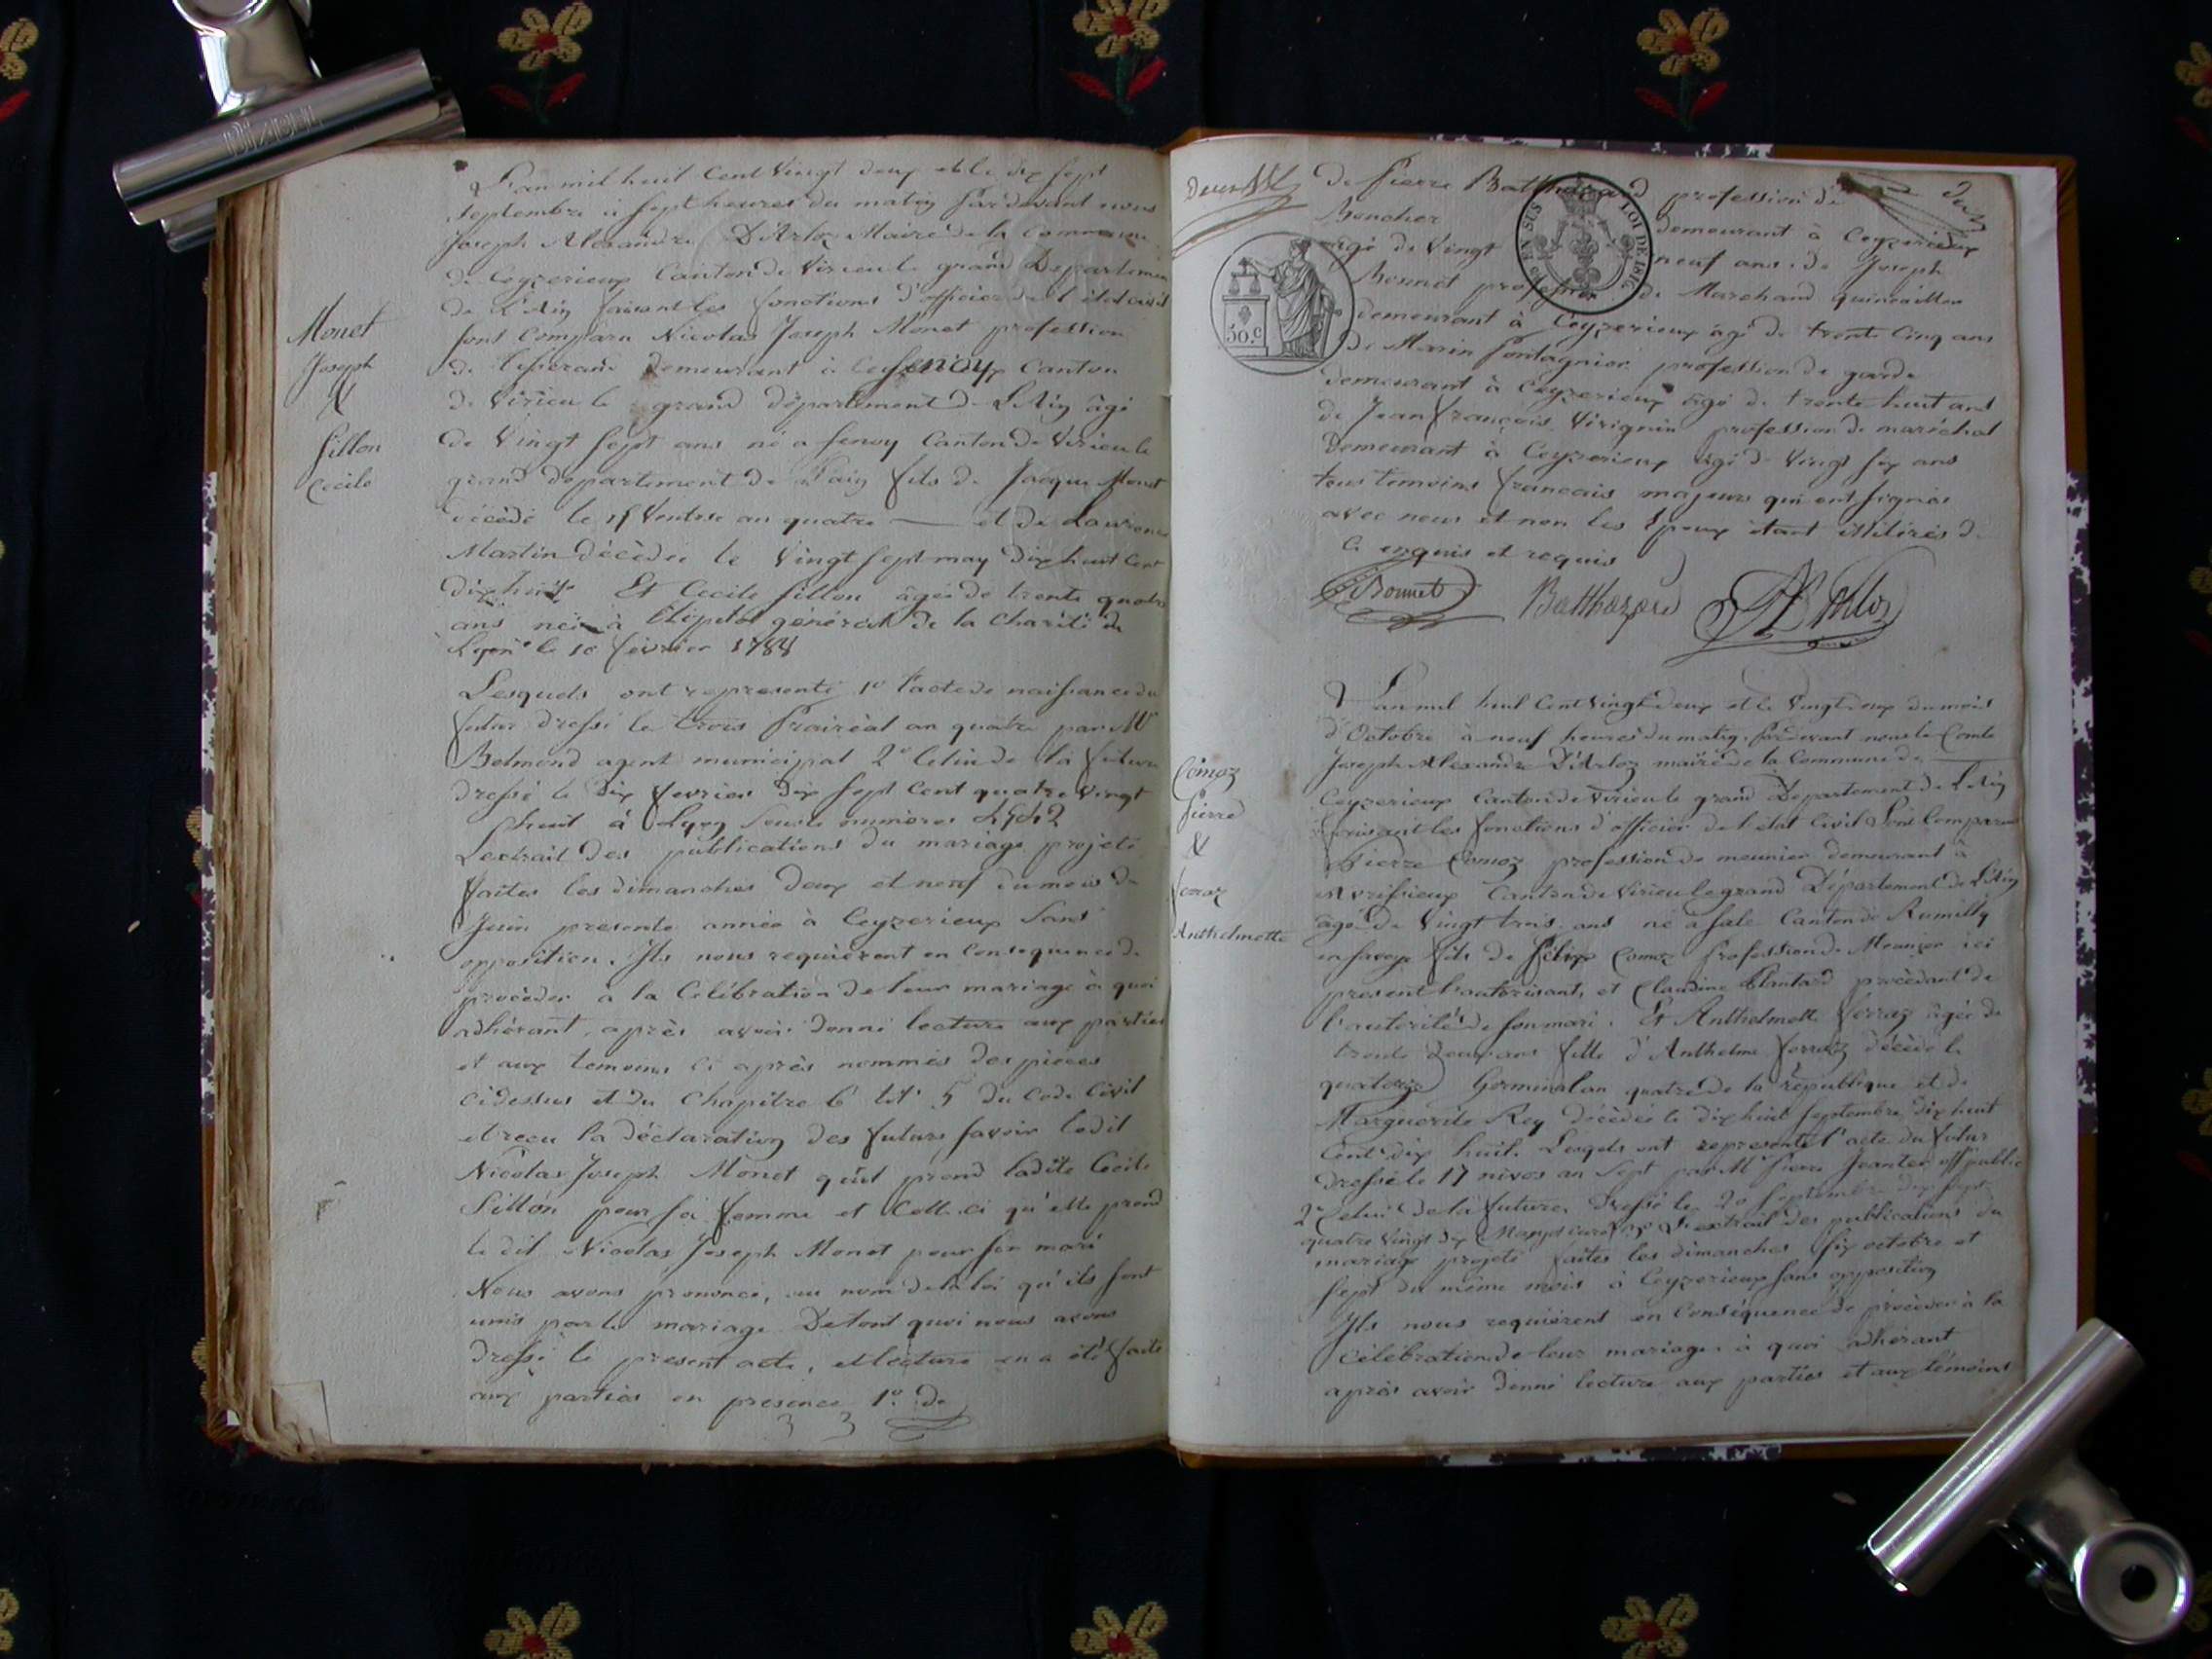 L'an mil huit Cent Vingt deux et le dix sept
Septembre à sept heures du matin Pardevant nous
Joseph Alexandre D'Arloz Maire de la Commune
de Ceyzerieux Canton de Virieu le grand Departement
de L'Ain faisant les fonctions d'officier de l'état civil
sont Comparu Nicolas Joseph Monet profession
de tisserand demeurant à Canton
de Virieu le grand département de L'Ain âgé
de Vingt sept ans né a fenoy Canton de Virieu le
grand département de L'ain fils de Jacques Monet
décédé le Ventose an quatre et de
Martin décédée le Vingt sept may dix huit Cent
dix huit Et Cecile Sillon âgée de trente quatre
ans née à général de la Charité de
Lyon le 10 février 1788
Lesquels ont representé 1º l'acte de naissance du
futur dressé le trois Prairéal an quatre par Mr
Belmond agent municipal 2º Celui de la future
dressé le Dix fevrier Dix Sept Cent quatre Vingt
huit à Lyon sous le numéros
L'extrait des publications du mariage projeté
faites les dimanches Deux et neuf du mois de
Juin presente année à Ceyzerieux Sans
opposition. Ils nous requièrent en Consequence de
procéder à la Célébration de leur mariage à quoi
adhérant, après avoir donné lecture aux parties
et aux temoins Ci après nommés des pièces
cidessus et du Chapitre 6 tit. 5 du Code Civil
et reçu la déclaration des futurs savoir ledit
Nicolas Joseph Monet qu'il prend ladite Cecile
Sillon pour sa femme et Celle ci qu'elle prend
le dit Nicolas Joseph Monet pour son mari
Nous avons prononcé, au nom de la loi qu'ils sont
unis par le mariage De tout quoi nous avons
dressé le present acte, et lecture en a été faite
aux parties en presence 1º. de
Monet
Joseph
&
Sillon
Cecile
de Pierre Balthazard profession de
Boucher demeurant à Ceyzerieux
âgé de Vingt neuf ans. de Joseph
Bonnet profession de Marchand quincailler
demeurant à Ceyzerieux âgé de trente Cinq ans
de Marin Pontagnier profession de garde
demeurant à Ceyzerieux âgé de trente huit ans
de Jean françois Virignin profession de maréchal
Demeurant à Ceyzerieux âgé de Vingt six ans
tous temoins francais majeurs qui ont signés
avec nous et non les Epoux étant illitérés de
Ce enquis et requis
EN SUS LOI DE 1816
50.C
Bonnet Balthazard
L'an mil huit Cent Vingt deux et le Vingt deux du mois
d'Octobre à neuf heures du matin. Pardevant nous le Comte
Joseph Alexandre D'Arloz maire de la Commune de
Ceyzerieux Canton de Virieu le grand Departement de L'Ain
faisant les fonctions d'officier de l'état Civil Sont Comparus
Pierre Comoz profession de meunier demeurant à
Canton de Virieu le grand Département de L'Ain
âgé de Vingt trois ans né à Sale Canton de Rumilly
en savoye fils de Comoz Profession de Meunier ici
present l'autorisant, et Claudine Plantard procédant de
l'autorité de son mari. Et Anthelmette ferraz âgée de
trente deux ans fille d'Anthelme ferraz décédé le
quatorze Germinal an quatre de la république et de
Marguerite Rey décédée le dix huit Septembre dix huit
Cent dix huit. Lesquels ont representé l'acte du futur
Dressé le 17 nivos an Sept par Mr Pierre off. public
2º Celui de la future Dressé le 20 Septembre dix sept
quatre Vingt dix curé 3º L'extrait des publications du
mariage projeté faites les dimanches six octobre et
sept du même mois à Ceyzerieux sans opposition
Ils nous requièrent en Conséquence de procéder à la
Célébration de leur mariage à quoi adhérant
après avoir donné lecture aux parties et aux témoins
Comoz
Pierre
&
ferraz
Anthelmette